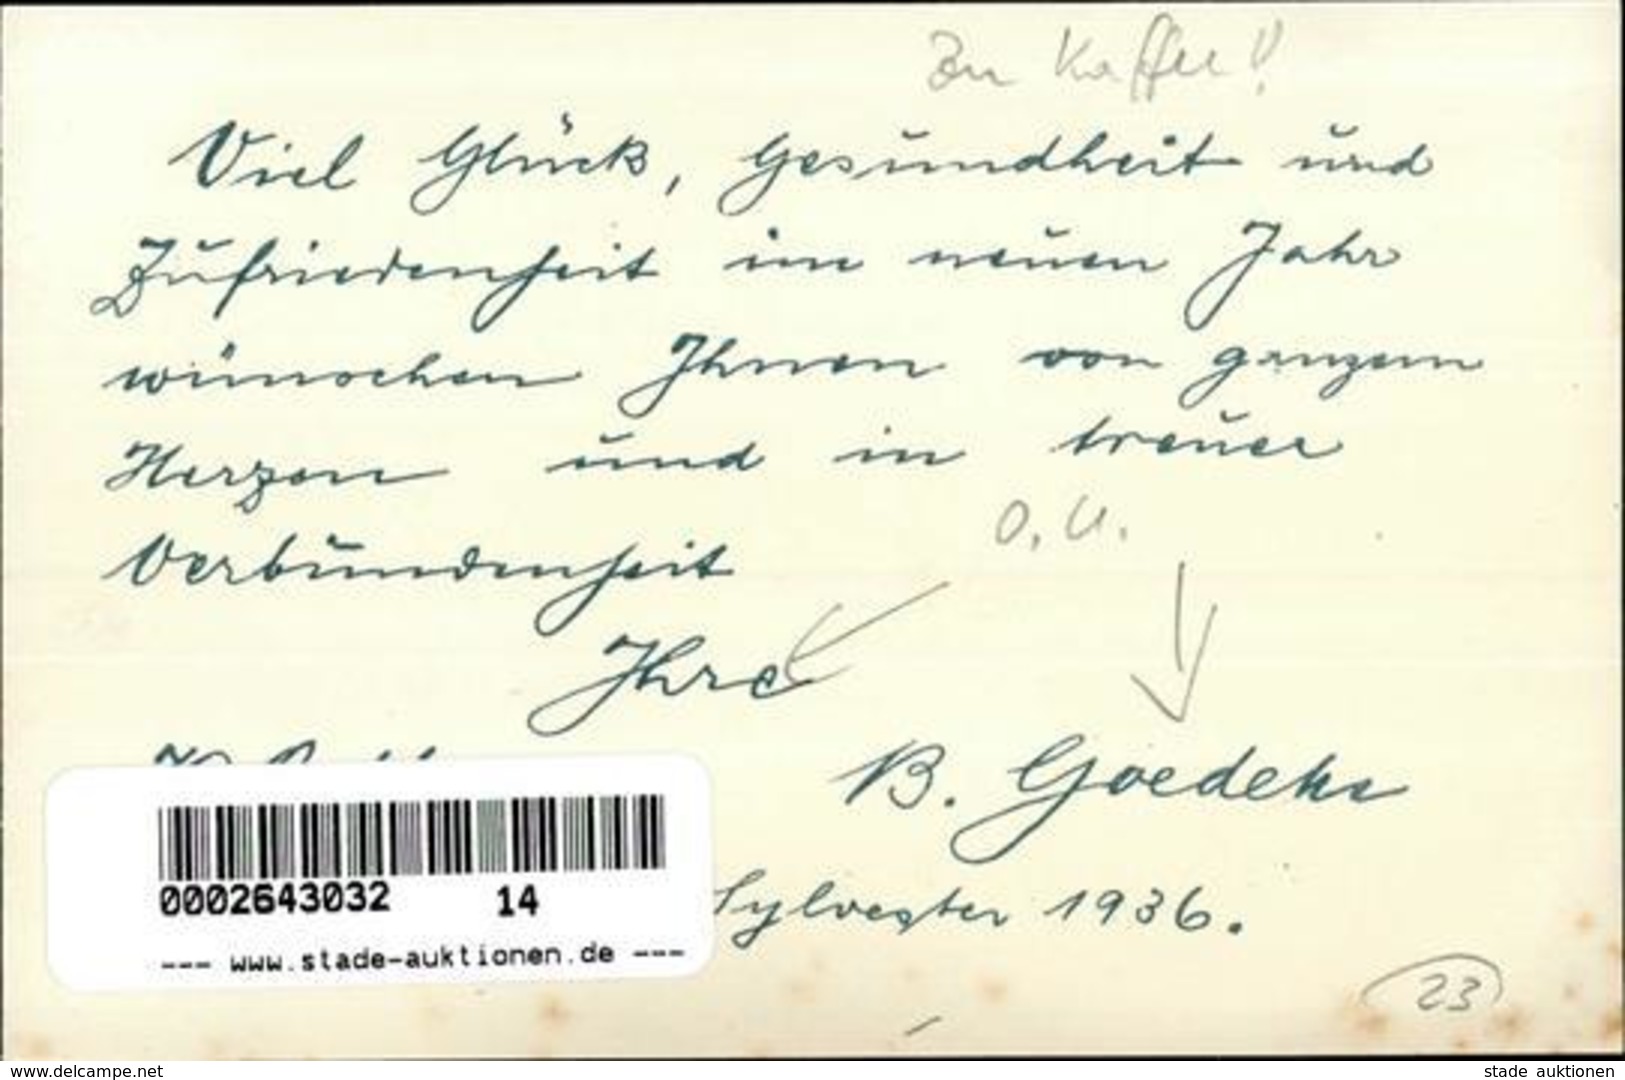 Kaffee!!
Viel Glück, Gesundheit und
Zufriedenheit im neuen Jahr
wünschen Ihnen von ganzem
Herzen und in treuer
O. U.
Verbundenheit
Ihre
B. Goedeke
0002643032 14
Sylvester 1936.
--- www.stade-auktionen.de ---
23
www.delcampe.net
stade auktionen